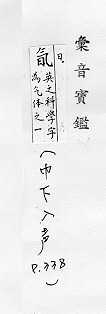 彙音寶鑑
日
氜
英之科學字
為气体之一
(巾下入声
P.338)